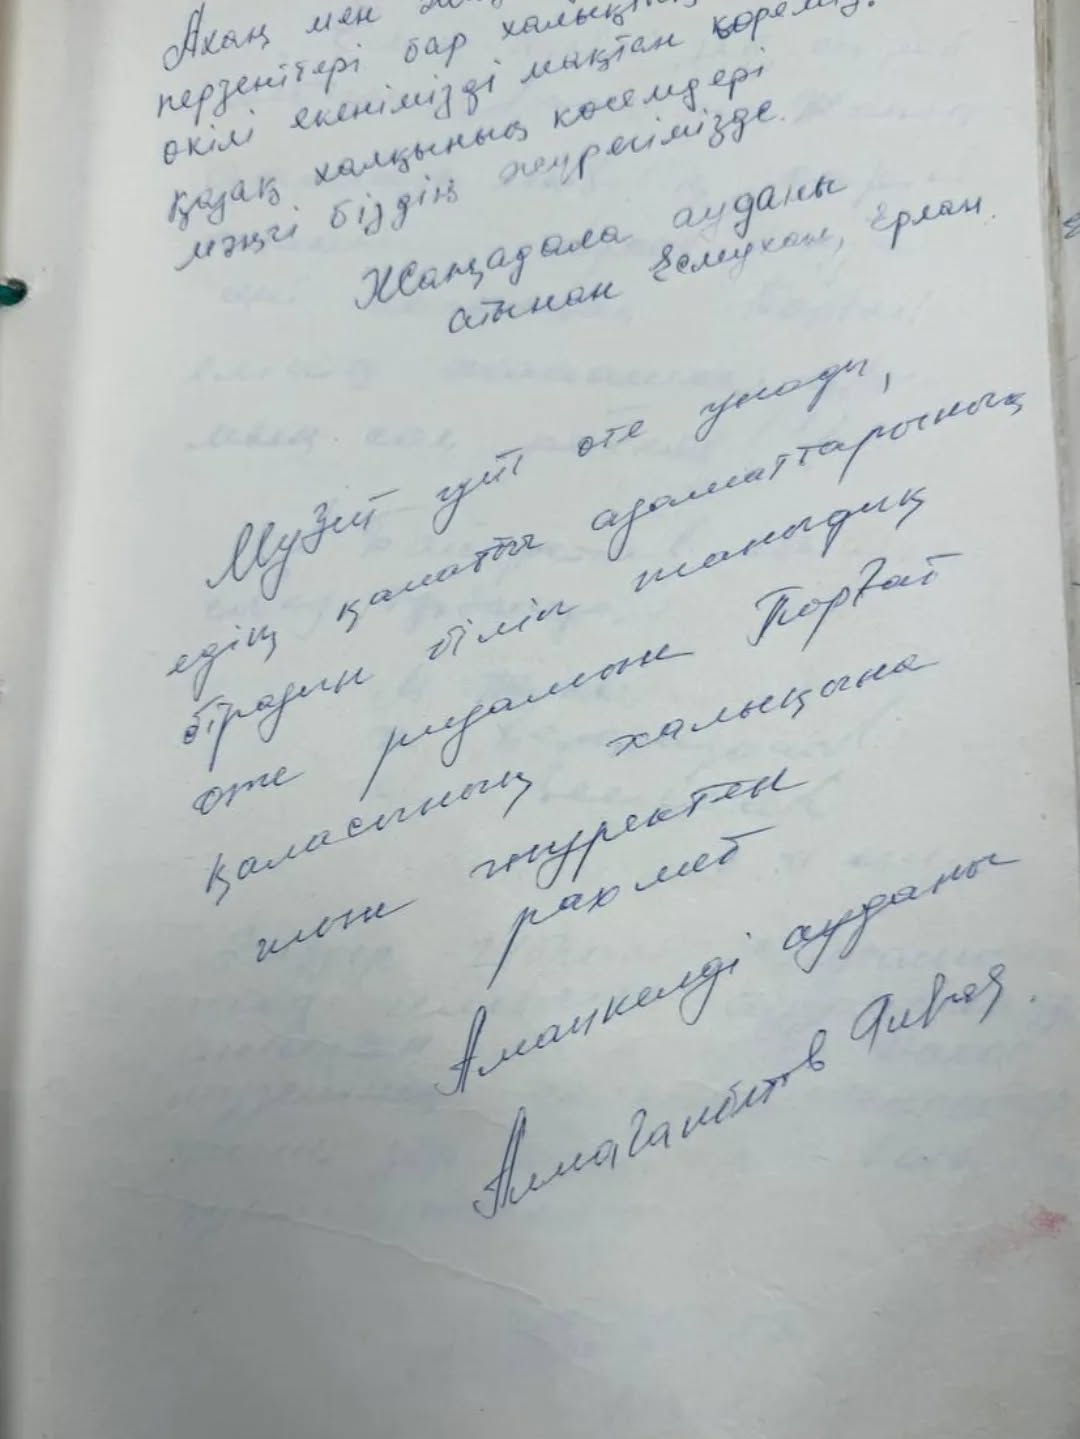 Ахаң мен
перзенттері бар халықтың
өкілі екенімізді мақтан көреміз.
қазақ халқының көсемдері
мәңгі біздің жүрегімізде.
Жаңадала ауданы
атынан Есмұхан, Ерлан.
Музей өте ұнады,
едің қанатты азаматтарының
біразын біліп таныдық
өте ризамын Торғай
қаласының халықына
шын жүректен
рахмет
Аманкелді ауданы
Алмаганбетов